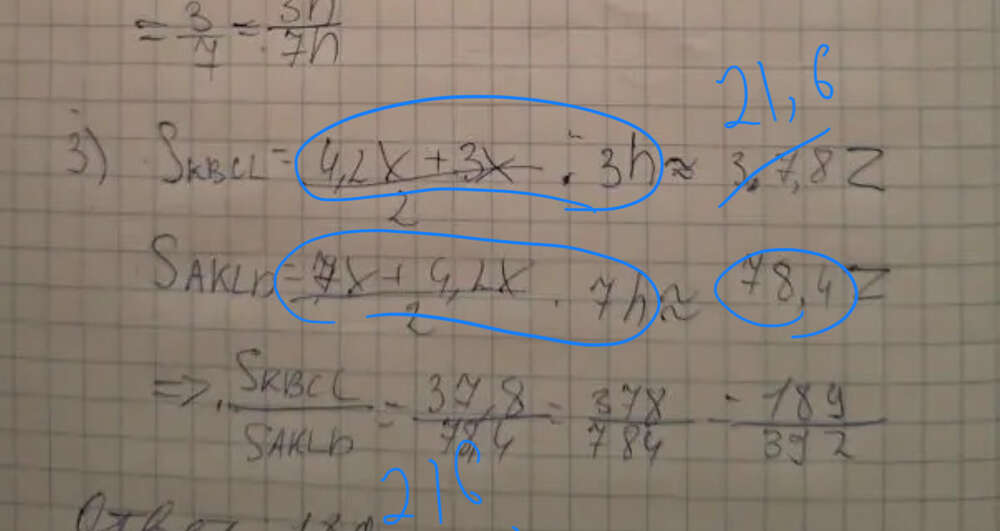 = 3/7 = 3h/7h
21,6
3) SKBCL = (4,2x + 3x)/2 · 3h ≈ 37,8 Z
SAKLD = (7x + 4,2x)/2 · 7h ≈ 78,4 Z
=> SKBCL/SAKLD = 37,8/78,4 = 378/784 = 189/392
216
Ответ